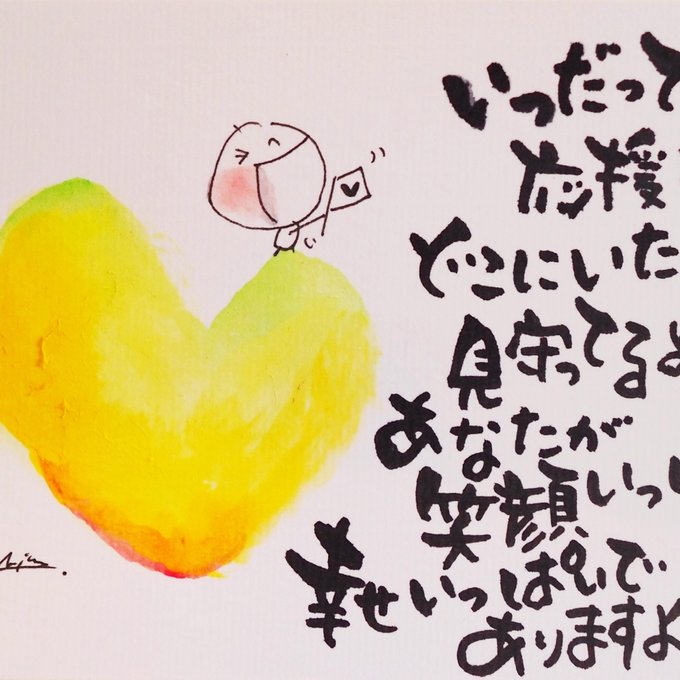 いつだって
応援
どこにいた
見守ってるよ
あなたが
笑顔いっ
幸せいっぱいで
ありますよ